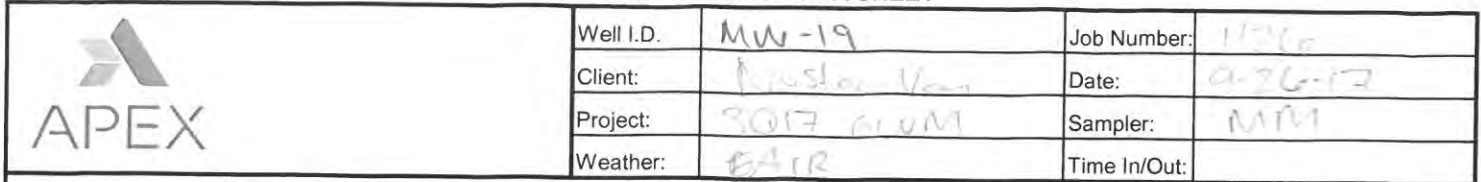 Well I.D. MW-19 Job Number:
Client: Date: 9-26-17
APEX
Project: 3Q17 GWM Sampler: MM
Weather: FAIR Time In/Out: